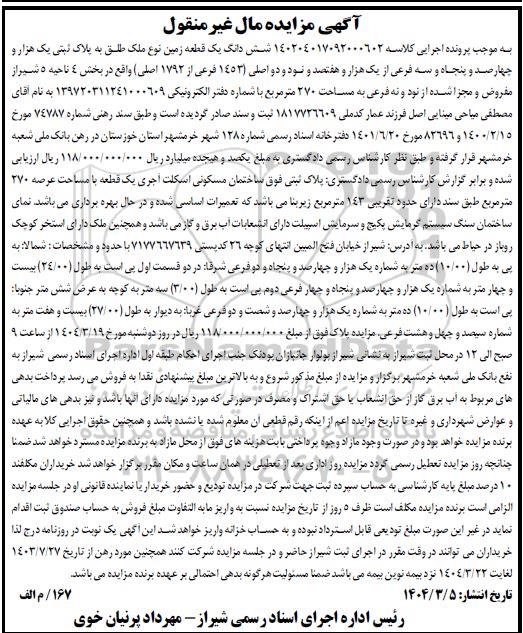 آگهی مزایده مال غیرمنقول
به موجب پرونده اجرایی کلاسه ۱۴۰۲۰۴۰۱۷۰۹۲۰۰۰۶۰۲ شش دانگ یک قطعه زمین نوع ملک طلق به پلاک ثبتی یک هزار و
چهارصد و پنجاه و سه فرعی از یک هزار و هفتصد و نود و دو اصلی (۱۴۵۳ فرعی از ۱۷۹۲ اصلی) واقع در بخش ۴ ناحیه ۵ شیراز
مفروض و مجزا شده از نود و نه فرعی به مساحت ۲۷۰ مترمربع با شماره دفتر الکترونیکی ۱۳۹۷۲۰۳۱۱۲۴۱۰۰۰۶۰۹ به نام آقای
مصطفی میاحی مینایی اصل فرزند عمار کدملی ۱۸۱۷۷۲۶۶۰۹ ثبت و سند صادر گردیده است و طبق سند رهنی شماره ۷۴۷۸۷ مورخ
۱۴۰۰/۲/۱۵ و ۸۲۶۹۶ مورخ ۱۴۰۱/۶/۲۰ دفترخانه اسناد رسمی شماره ۱۲۸ شهر خرمشهر استان خوزستان در رهن بانک ملی شعبه
خرمشهر قرار گرفته و طبق نظر کارشناس رسمی دادگستری به مبلغ یکصد و هیجده میلیارد ریال ۱۱۸/۰۰۰/۰۰۰/۰۰۰ ریال ارزیابی
شده و برابر گزارش کارشناس رسمی دادگستری: پلاک ثبتی فوق ساختمان مسکونی اسکلت آجری یک قطعه با مساحت عرصه ۲۷۰
مترمربع طبق سند دارای حدود تقریبی ۱۴۳ مترمربع زیربنا می باشد که تعمیرات اساسی شده و در حال بهره برداری می باشد. نمای
ساختمان سنگ سیستم گرمایش پکیج و سرمایش اسپیلت دارای انشعابات آب برق و گاز می باشد و همچنین ملک دارای استخر کوچک
روباز در حیاط می باشد. به آدرس: شیراز خیابان فتح المبین انتهای کوچه ۲۶ کدپستی ۷۱۷۷۶۶۷۶۳۹ با حدود و مشخصات: شمالا: به
پی به طول (۱۰/۰۰) ده متر به شماره یک هزار و چهارصد و پنجاه و دو فرعی شرقا: در دو قسمت اول پی است به طول (۲۴/۰۰) بیست
و چهار متر به شماره یک هزار و چهارصد و پنجاه و چهار فرعی دوم پی است به طول (۳/۰۰) سه متر به کوچه به عرض شش متر جنوبا:
پی است به طول (۱۰/۰۰) ده متر به شماره یک هزار و چهارصد و شصت و دو فرعی غربا: به دیوار به طول (۲۷/۰۰) بیست و هفت متر به
شماره سیصد و چهل و هشت فرعی. مزایده پلاک فوق از مبلغ ۱۱۸/۰۰۰/۰۰۰/۰۰۰ ریال در روز دوشنبه مورخ ۱۴۰۴/۳/۱۹ از ساعت ۹
صبح الی ۱۲ در محل ثبت شیراز به نشانی شیراز بولوار جانبازان پودنک جنب اجرای احکام طبقه اول اداره اجرای اسناد رسمی شیراز به
نفع بانک ملی شعبه خرمشهر برگزار و مزایده از مبلغ مذکور شروع و به بالاترین مبلغ پیشنهادی نقدا به فروش می رسد پرداخت بدهی
های مربوط به آب برق گاز اعم از حق انشعاب یا حق اشتراک و مصرف در صورتی که مورد مزایده دارای آنها باشد و نیز بدهی های مالیاتی
و عوارض شهرداری و غیره تا تاریخ مزایده اعم از اینکه رقم قطعی آن معلوم شده یا نشده باشد و همچنین حقوق اجرایی کلا به عهده
برنده مزایده خواهد بود و در صورت وجود مازاد وجوه پرداختی بابت هزینه های فوق از محل مازاد به برنده مزایده مسترد خواهد شد ضمنا
چنانچه روز مزایده تعطیل رسمی گردد مزایده روز اداری بعد از تعطیلی در همان ساعت و مکان مقرر برگزار خواهد شد خریداران مکلفند
۱۰ درصد مبلغ پایه کارشناسی به حساب سپرده ثبت جهت شرکت در مزایده تودیع و حضور خریدار یا نماینده قانونی او در جلسه مزایده
الزامی است برنده مزایده مکلف است ظرف ۵ روز از تاریخ مزایده نسبت به واریز مابه التفاوت مبلغ فروش به حساب صندوق ثبت اقدام
نماید در غیر این صورت مبلغ تودیعی قابل استرداد نبوده و به حساب خزانه واریز خواهد شد این آگهی یک نوبت در روزنامه درج لذا
خریداران می توانند در وقت مقرر در اجرای ثبت شیراز حاضر و در جلسه مزایده شرکت کنند همچنین مورد رهن از تاریخ ۱۴۰۳/۷/۲۷
لغایت ۱۴۰۴/۳/۲۲ نزد بیمه نوین بیمه می باشد ضمنا مسئولیت هرگونه بدهی احتمالی بر عهده برنده مزایده می باشد.
تاریخ انتشار: ۱۴۰۴/۳/۵ ۱۶۷/م الف
رئیس اداره اجرای اسناد رسمی شیراز - مهرداد پرنیان خوی